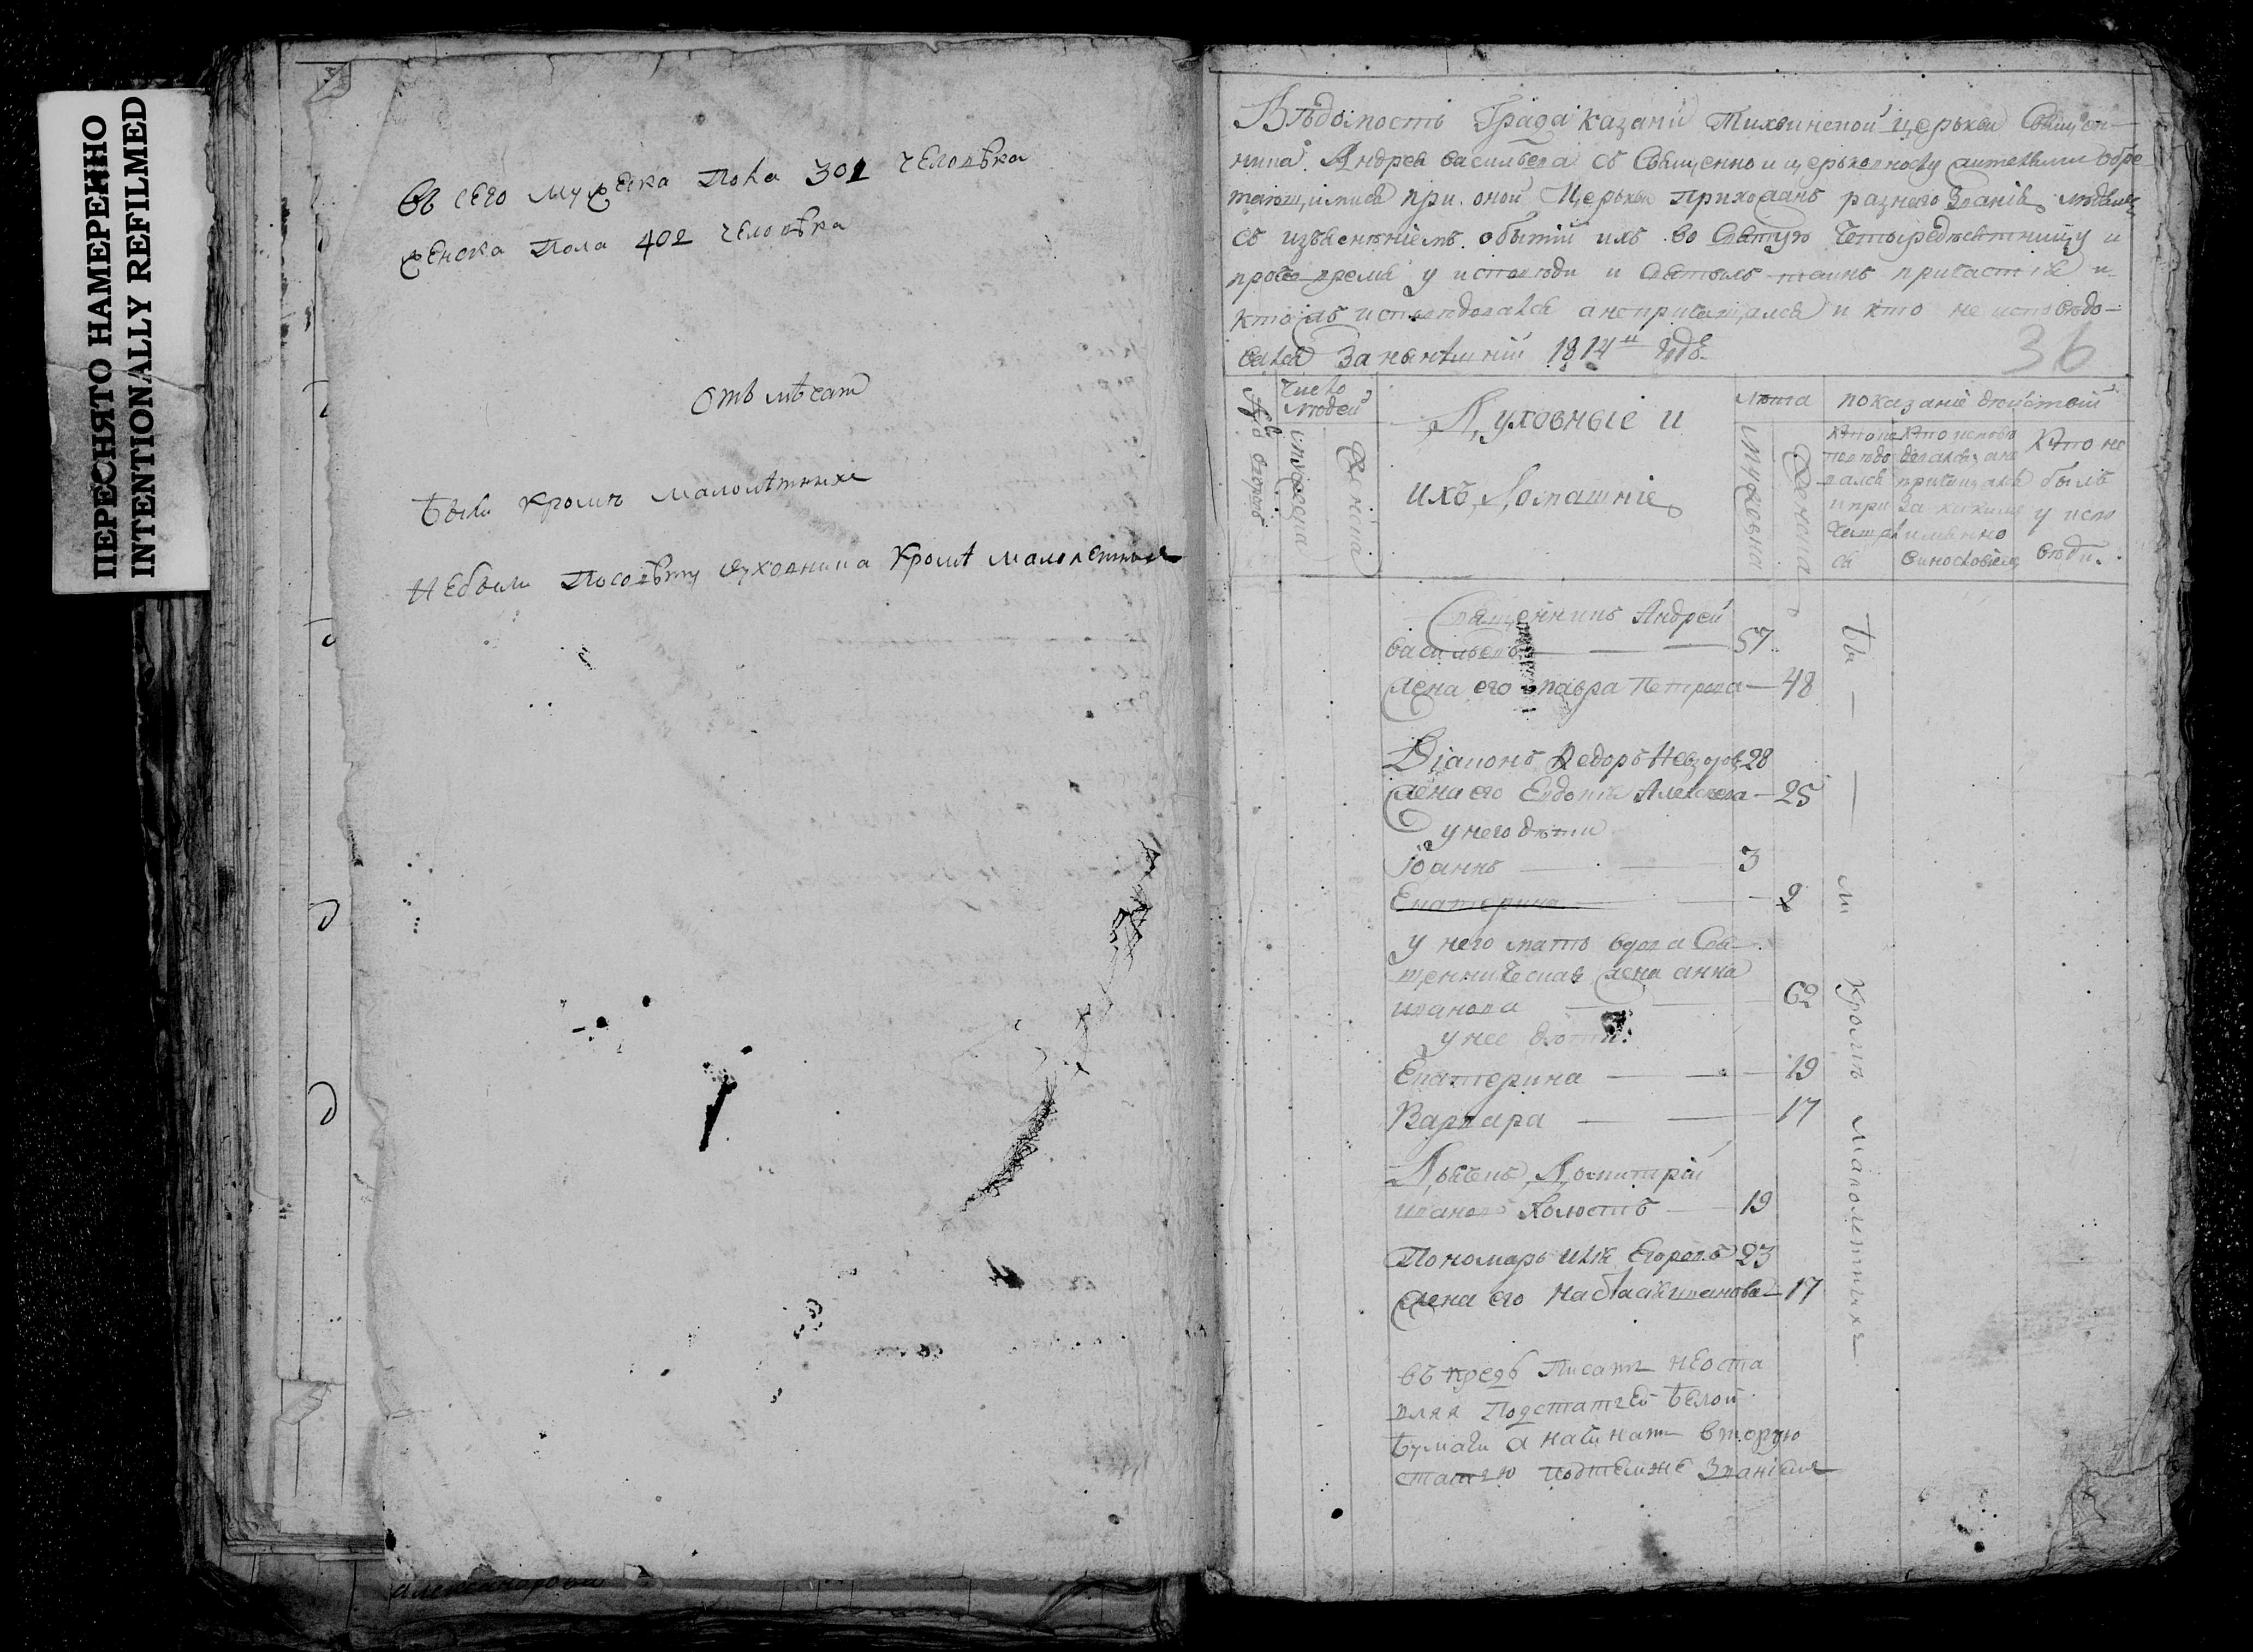 ПЕРЕСНЯТО НАМЕРЕННО
INTENTIONALLY REFILMED
Всего мужеска пола 301 человека
женска пола 402 человека
Отмѣсат
Были кромѣ малолѣтныхъ
Небыли посовѣту духовника кромѣ малолетныхъ
Александрова
Вѣдомость Града Казани Тихвинской церькви Священ-
ника Андрея Васильева съ Священно и церьковнослужительми обре-
тающимися при оной Церькви прихожанъ разнаго званія людямъ
съ изъясненіемъ о бытіи ихъ во Святую Четыредесятницу и
протчее время у исповѣди и Святыхъ таинъ причастія и
ктожъ исповѣдовался а непричащался и кто не исповѣдо-
вался За нынѣшній 1814й годъ
36
Число людей
Духовные и
ихъ Домашніе
Лѣта
показаніе действій
мужеска
женска
мужеска
женска
Кто ис
повѣдо
вался
и при
чащал
ся
Кто исповѣ
довался, а не
причащался
за какимъ
именно
винословіемъ
Кто не
былъ
у испо
вѣди.
Священникъ Андрей
Васильевъ 57
Жена его Мавра Петрова 48
Діаконъ Федоръ Невзоровъ 28
Жена его Евдокія Алексеева 25
у него дѣти
Іоаннъ 3
Екатерина 2
у него мать вдова Свя-
щенническая жена Анна
Иванова 62
у нее дѣти:
Екатерина 19
Варвара 17
Дьячекъ Димитрій
Ивановъ Холостъ 19
Пономарь Илія Егоровъ 23
Жена его Настасія Иванова 17
Бы — — ли кромѣ малолетныхъ
въ предь писать неоста
вляя подстатьей белой
бумаги а начинать вторую
статью подтемже званіемъ